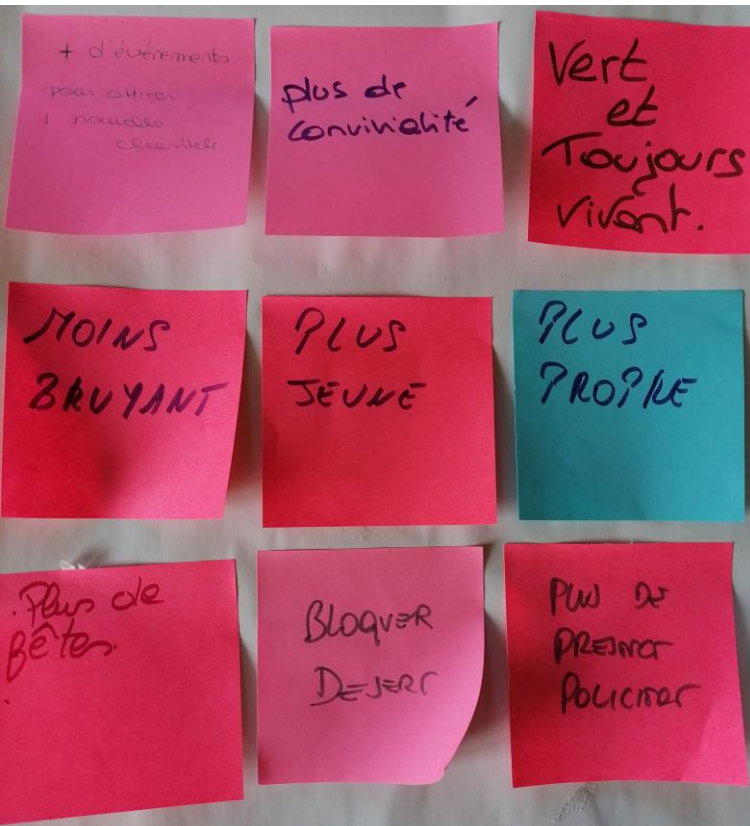 + d'événements
pour attirer
1 nouvelle
clientèle
plus de
convivialité
Vert
et
Toujours
vivant.
MOINS
BRUYANT
PLUS
JEUNE
PLUS
PROPRE
. Plus de
fêtes.
BLOQUER
DESERT
PLUS DE
PRESENCE
POLICIERE